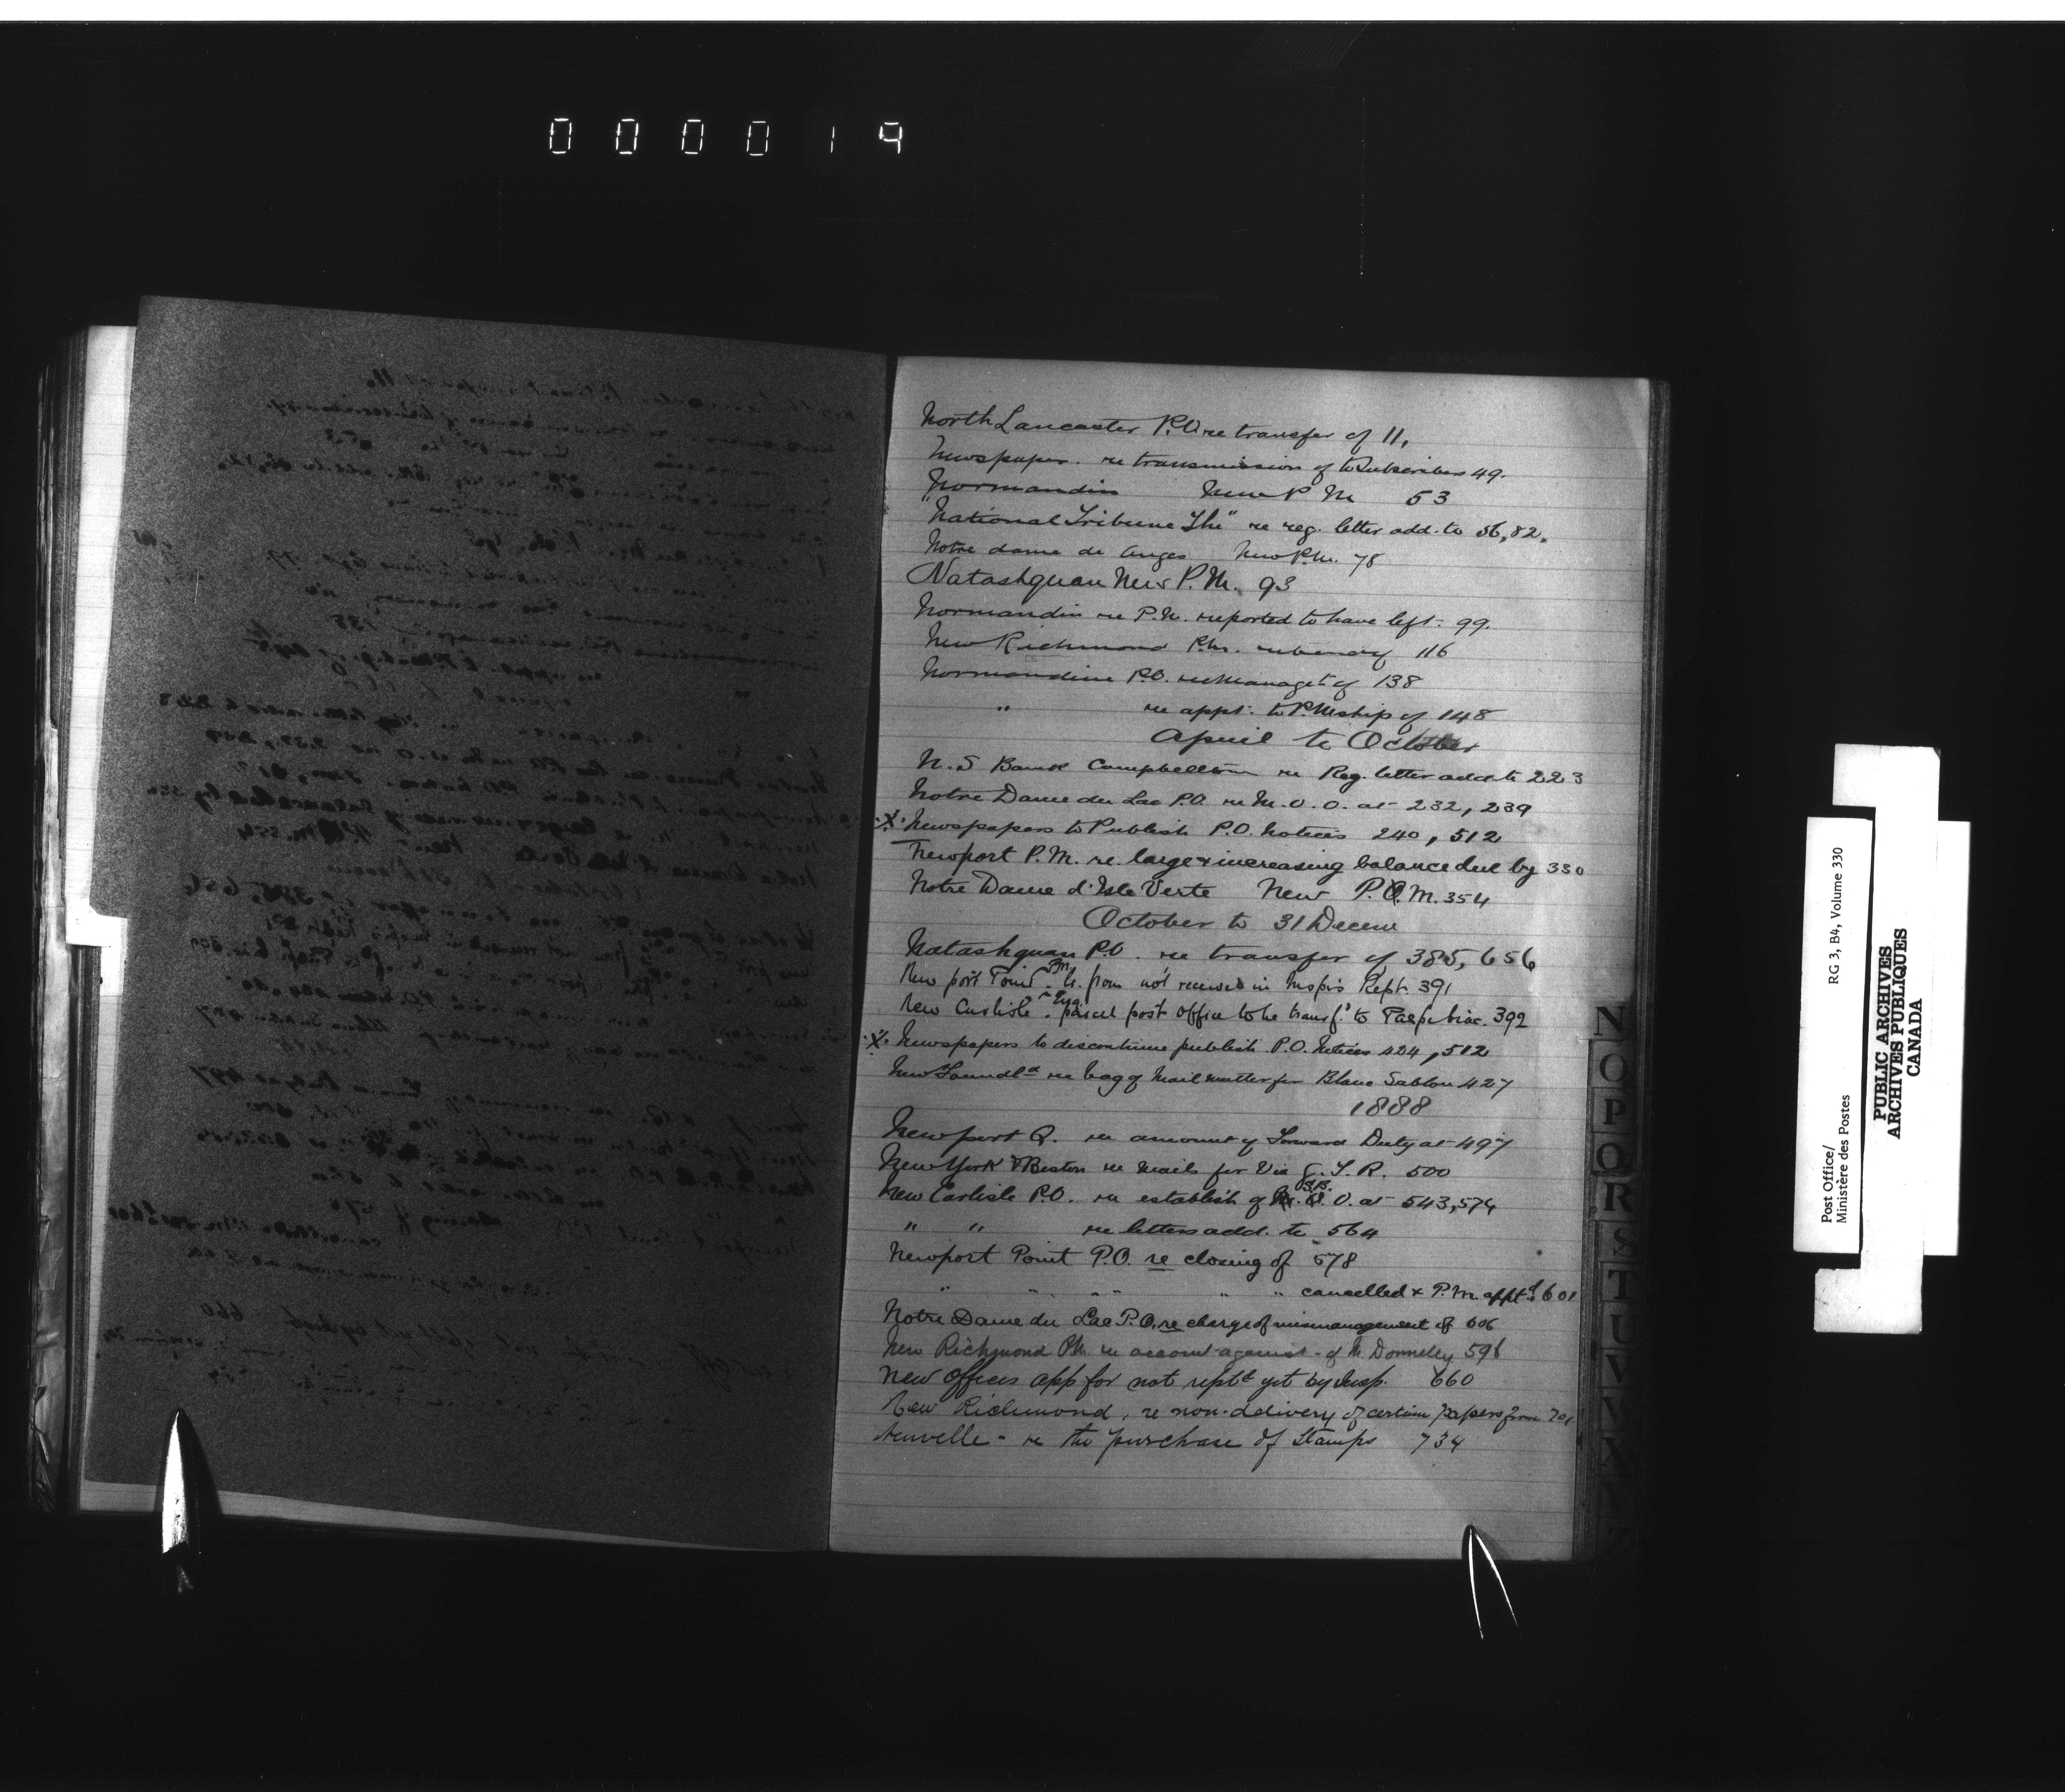 000019
North Lancaster P.O. re transfer of 11,
Newspaper. re transmission of to Subscribers 49.
Normandin New P M 53
"National Tribune The" re reg. letter add. to 56, 82.
Notre dame de Anges New P.M. 78
Natashquan New P.M. 93
Normandin re P.M. reported to have left. 99.
New Richmond P.M. 116
Normandin P.O. re Managet of 138
" re appt. to P.Mship of 148
April to October
N.S Bank Campbellton re Reg. letter add to 223
Notre Dame du Lac P.O. re M.O.O. at 232, 239
Newspapers to Publish P.O. Notices 240, 512
Newport P.M. re. large & increasing balance due by 330
Notre Dame d'Isle Verte New P.M. 354
October to 31 Decem
Natashquan P.O. re transfer of 385, 656
Newport Point P.M. from not received in Inspr's Rept. 391
New Carlisle parcel post office to be transf.d to Paspebiac. 392
Newspapers to discontinue publish P.O. Notices 424, 512
Newfoundld re bag of Mail matter for Blanc Sablon 427
1888
Newport Q. re amount of Forward Duty at 497
New York & Boston re Mails for Via G.T.R. 500
New Carlisle P.O. re establish of S.B. O. at 543, 574
" " re letters add. to 564
Newport Point P.O. re closing of 578
" " " " " " cancelled & P.M. apptd. 601
Notre Dame du Lac P.O. re charge of mismanagement of 606
New Richmond P.M. re account against of M. Donnelly 596
New Offices app for not reptd yet by Insp. 660
New Richmond, re non-delivery of certain papers from 701
Neuville - re the purchase of Stamps 734
N
O
P
Q
R
S
T
U
V
W
X
Y
Z
Post Office/
Ministère des Postes
RG 3, B4, Volume 330
PUBLIC ARCHIVES
ARCHIVES PUBLIQUES
CANADA